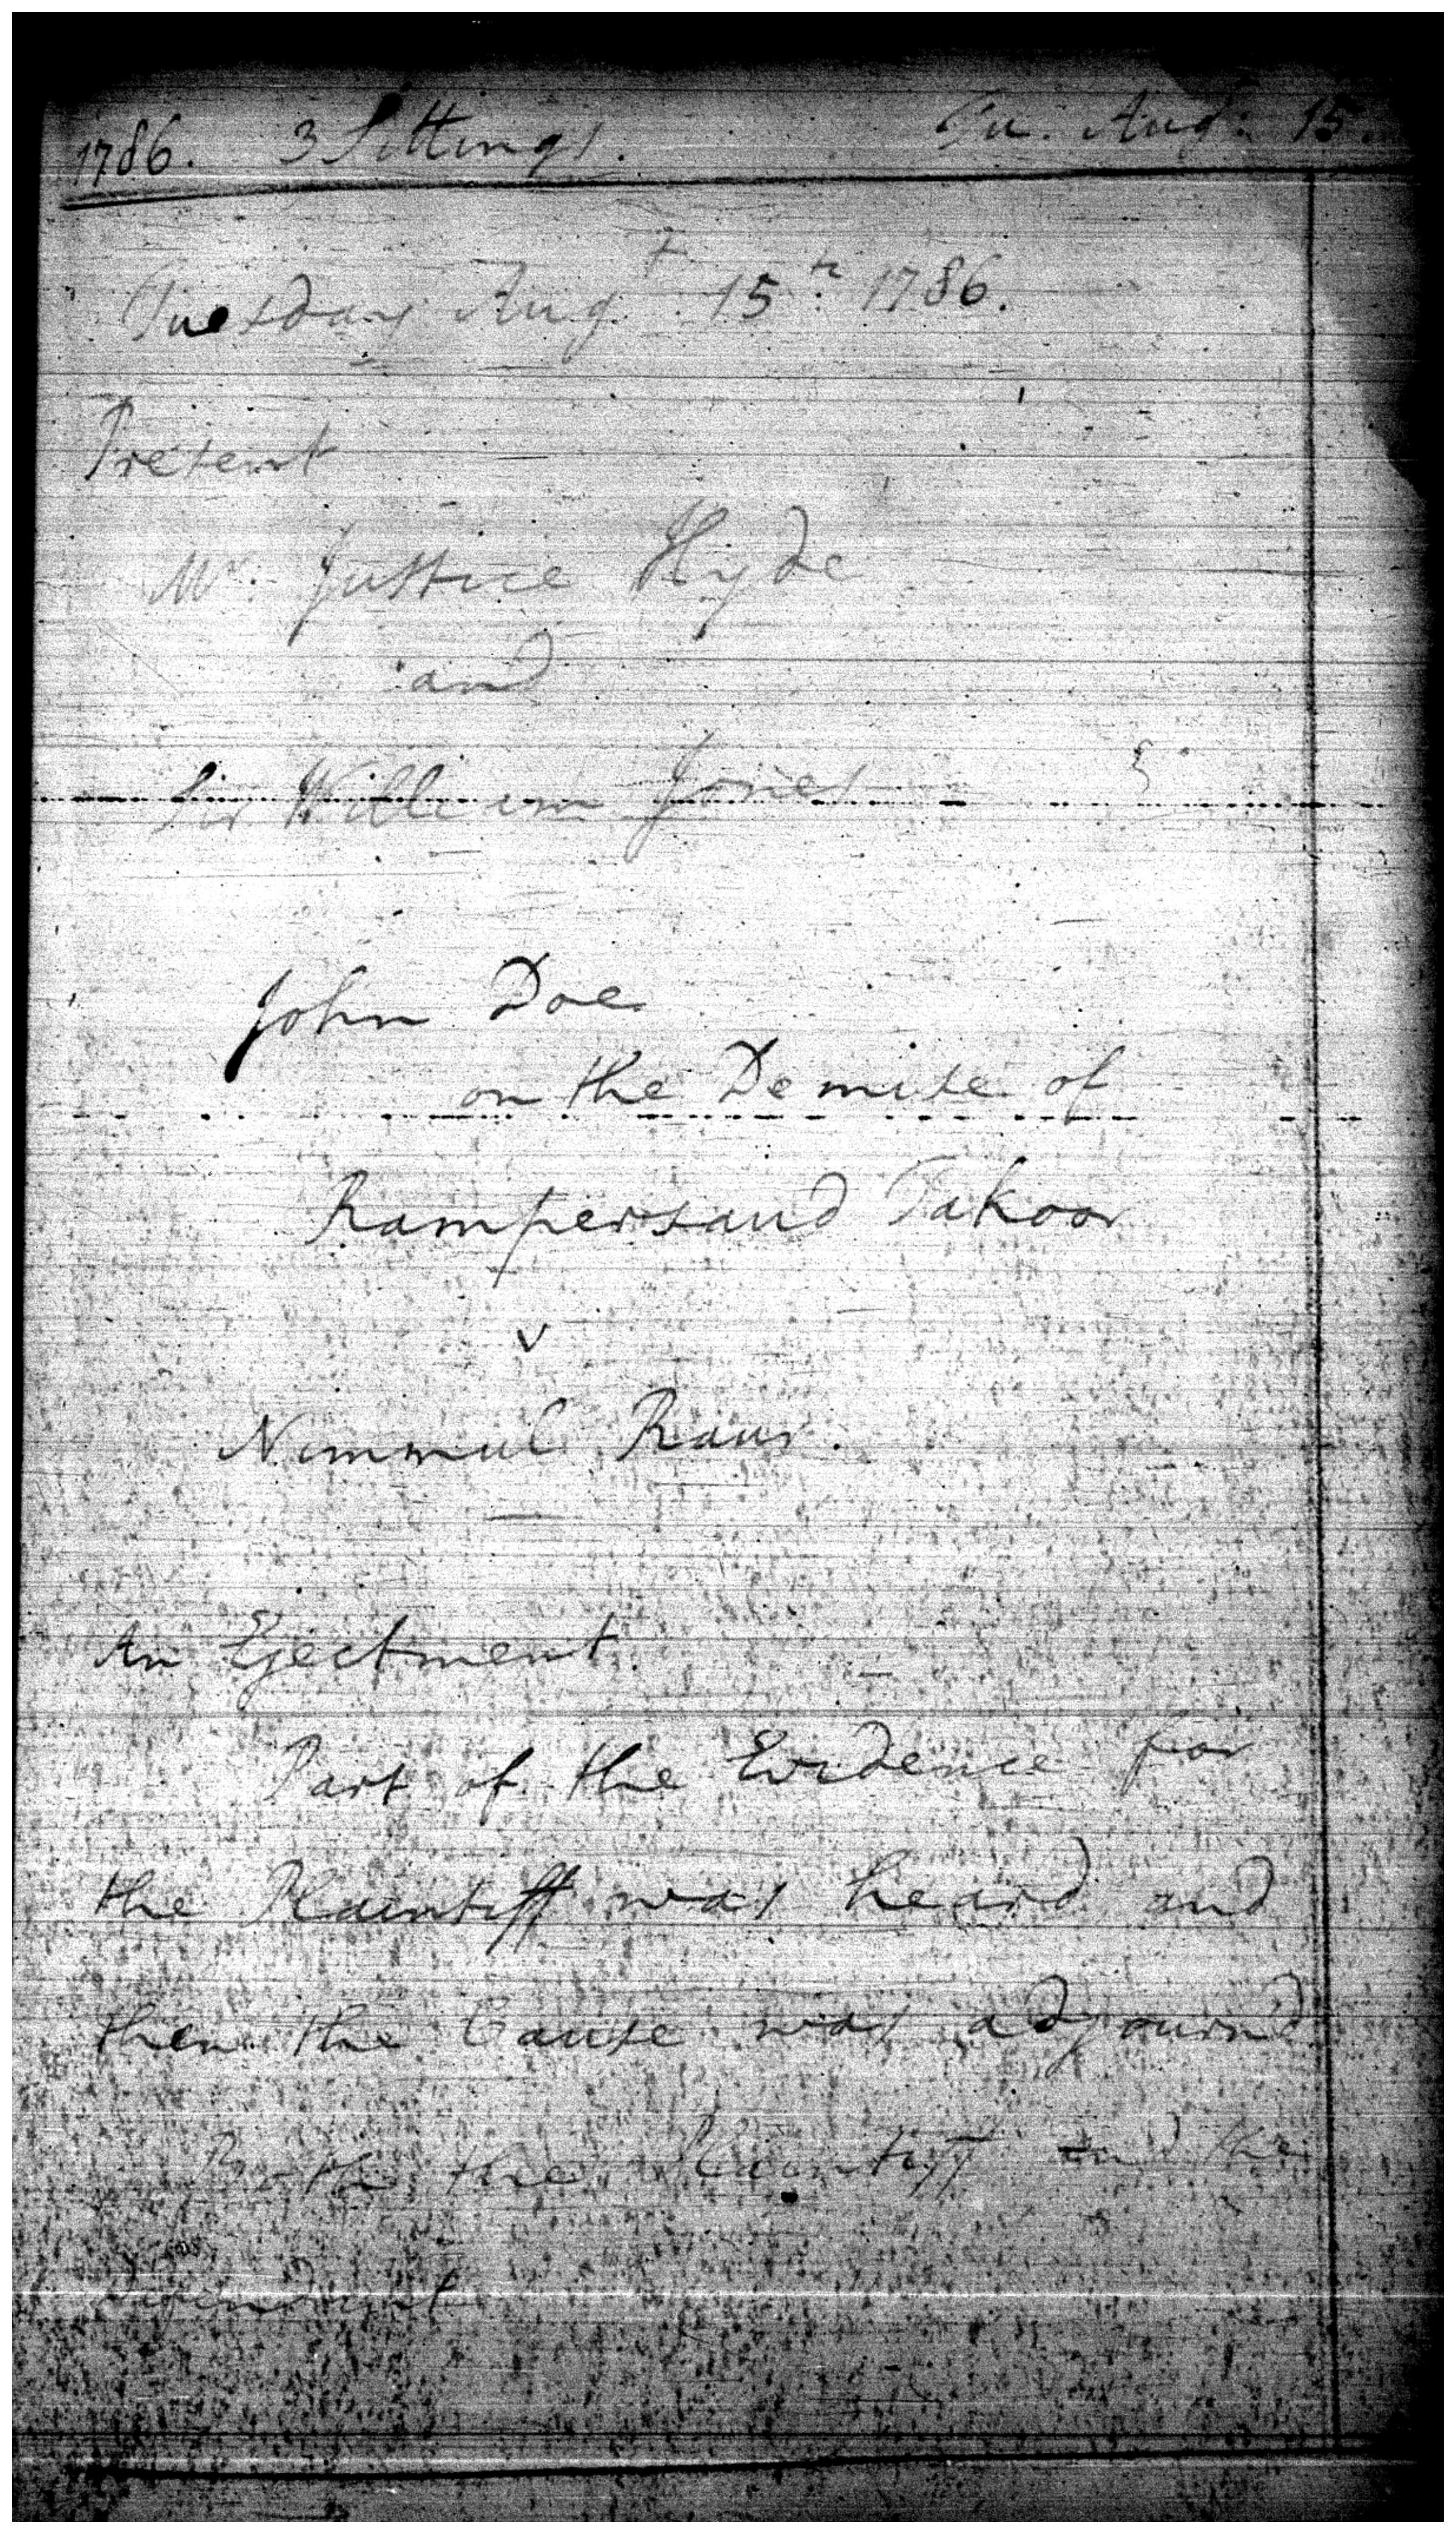 1786. 3 Sittings. Tu. Augt. 15.
Tuesday Augt. 15th. 1786.
Present
Mr. Justice Hyde
and
Sir William Jones
John Doe
on the Demise of
Rampersaud Takoor
v
Nimmul
An Ejectment.
Part of the Evidence for
the Plaintiff was heard and
then the Cause was adjournd
Both the Plaintiff and the
Defendant